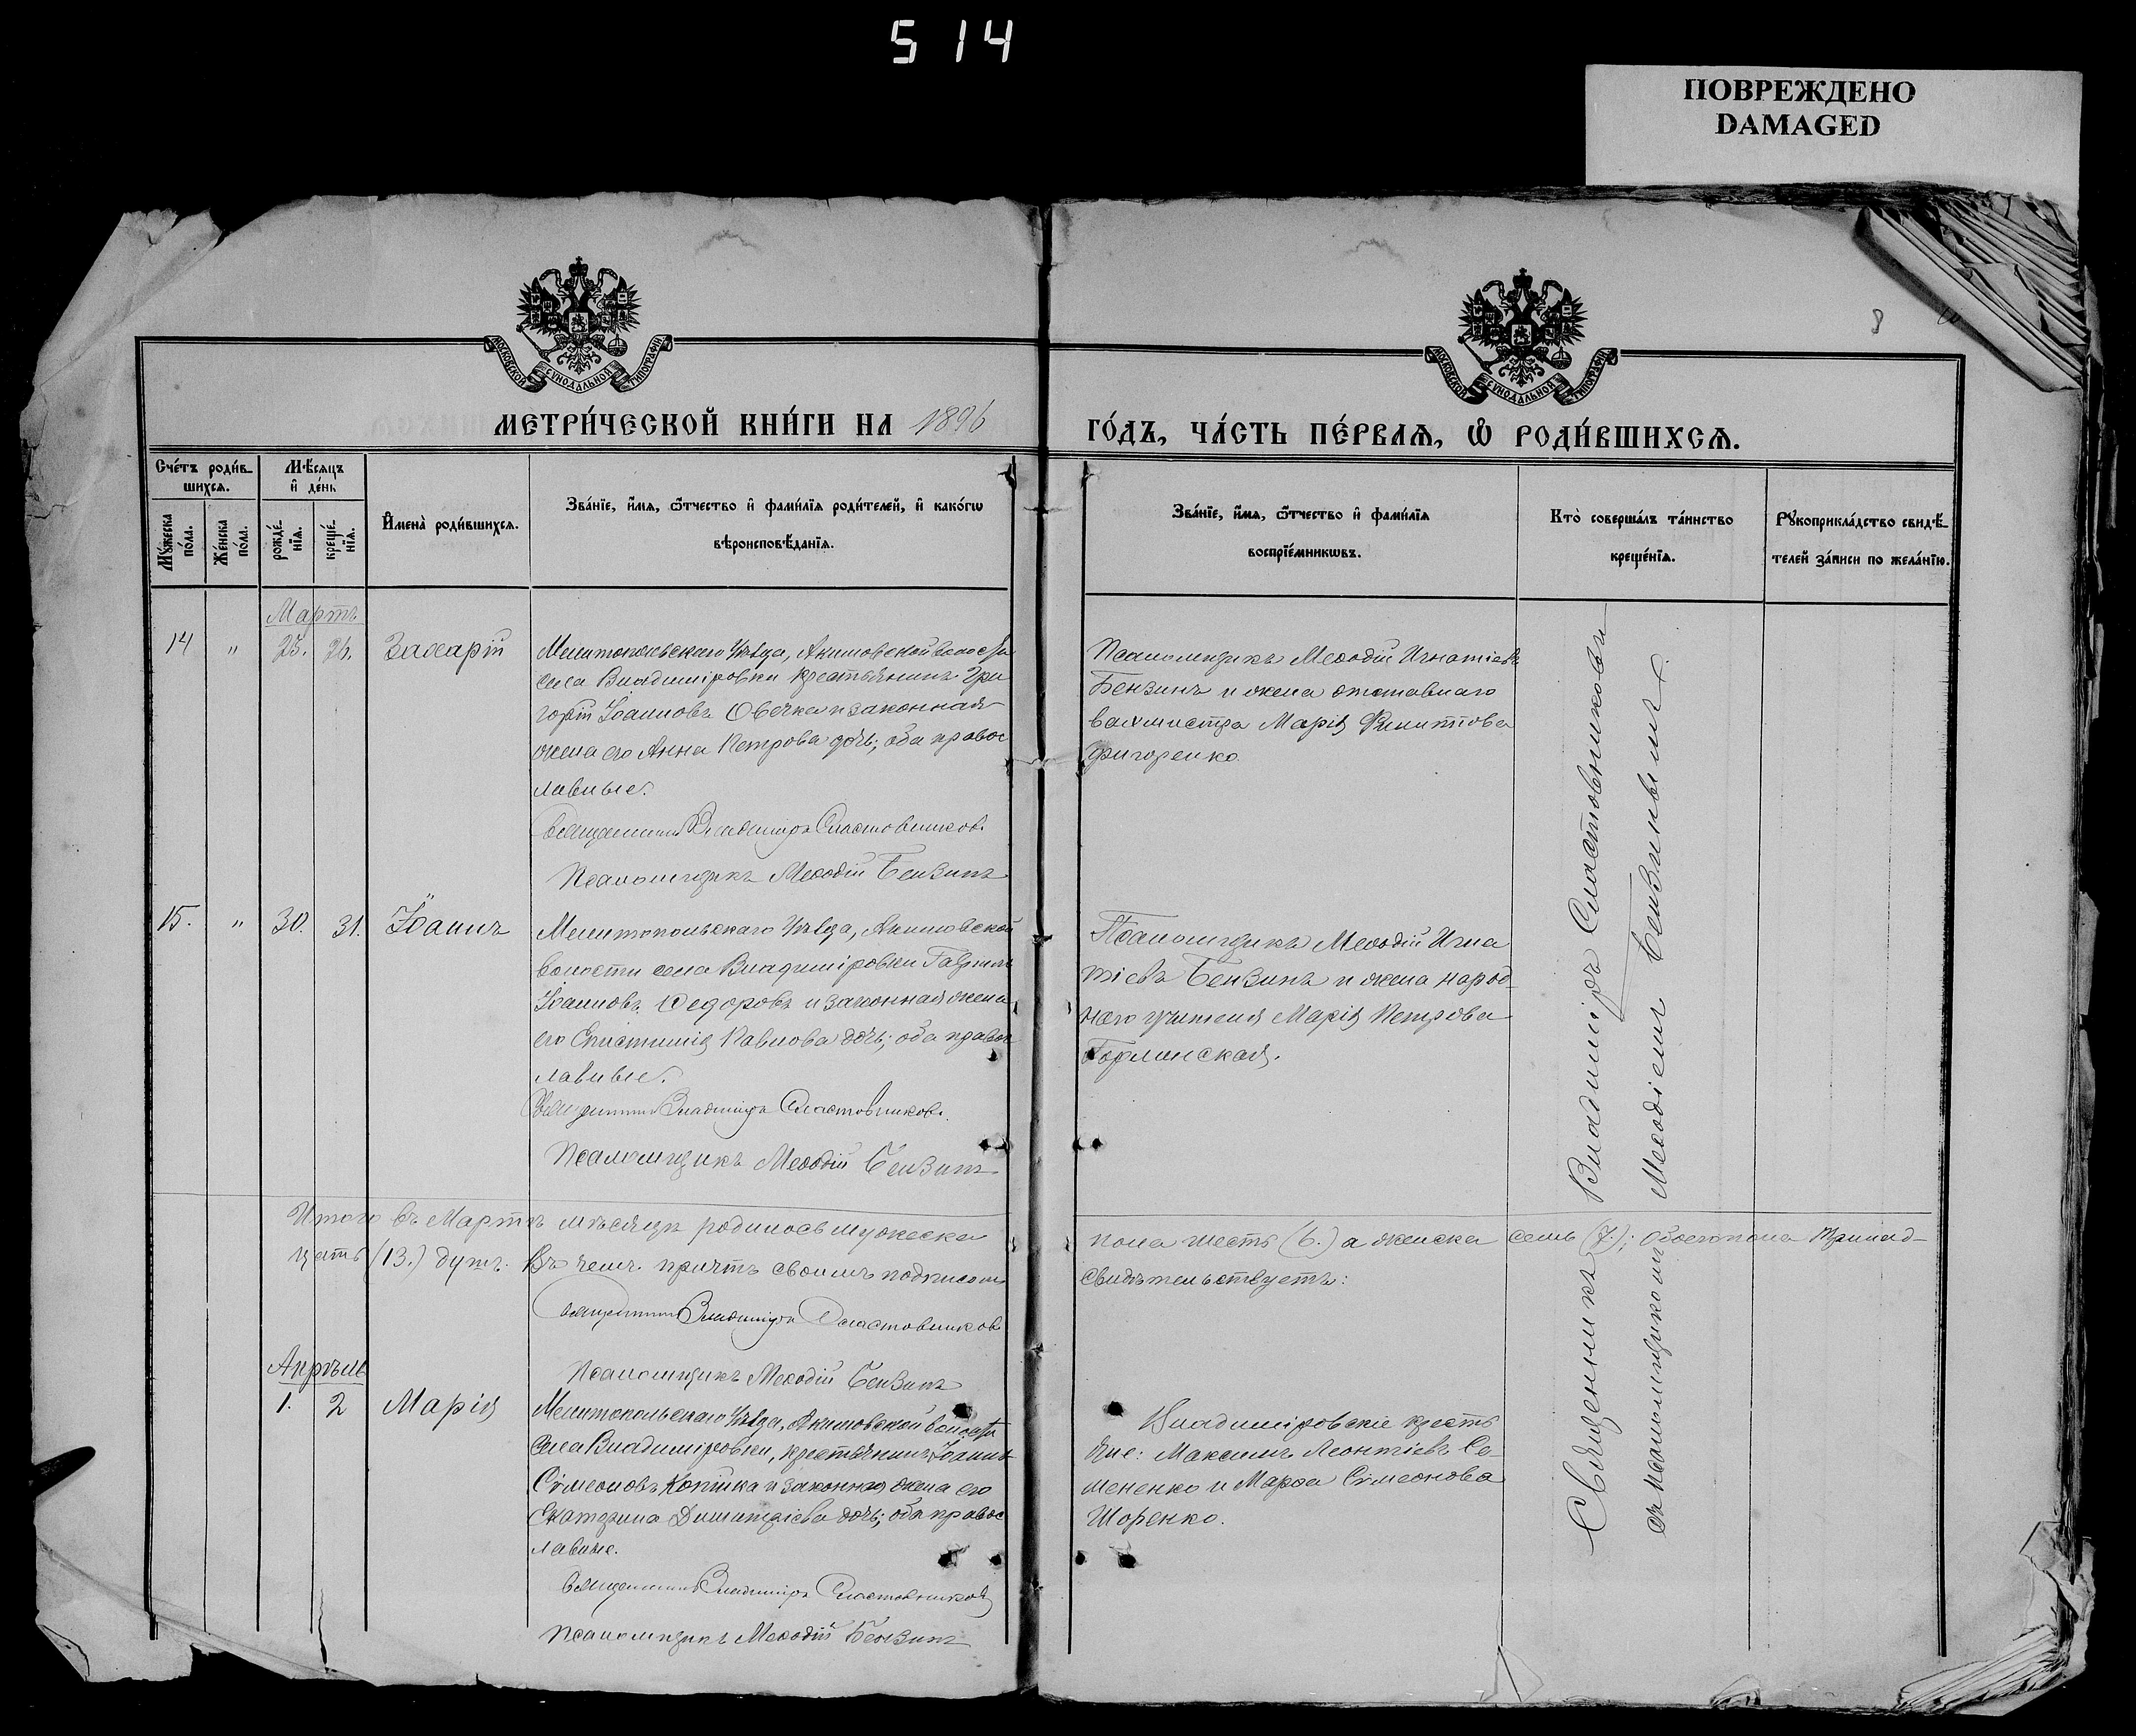 514
ПОВРЕЖДЕНО
DAMAGED
МОСКОВСКОЙ СУНОДАЛЬНОЙ ТИПОГРАФІИ
МОСКОВСКОЙ СУНОДАЛЬНОЙ ТИПОГРАФІИ
8
МЕТРИ́ЧЕСКОЙ КНИ́ГИ НА 1896
ГО́ДЪ, ЧА́СТЬ ПЕ́РВАѦ, Ѡ҆ РОДИ́ВШИХСѦ.
Сче́тъ роди́в-
шихсѧ.
Мꙋ́жеска
по́ла.
Же́нска
по́ла.
Мѣ́сѧцъ
и҆ де́нь
рожде́-
нїѧ.
креще́-
нїѧ.
И҆мена̀ роди́вшихсѧ.
Зва́нїе, и҆́мѧ, ѻ҆́тчество и҆ фами́лїѧ роди́телей, и҆ како́гѡ
вѣроисповѣ́данїѧ.
Зва́нїе, и҆́мѧ, ѻ҆́тчество и҆ фами́лїѧ
воспрїе́мникѡвъ.
Кто̀ соверша́лъ та́инство
креще́нїѧ.
Рꙋкоприкла́дство свидѣ́-
телей за́писи по жела́нїю.
Мартъ
14 " 25. 26. Захарій
Мелитопольскаго Уѣзда, Акимовской волости
села Владиміровки крестьянинъ Гри
горій Іоанновъ Овечка и законная
жена его Анна Петрова дочь; оба правос
лавные.
Священникъ Владиміръ Сластовников.
Псаломщикъ Меѳодій Бензинъ
Псаломщикъ Меѳодій Игнатіевъ
Бензинъ и жена отставнаго
вахмистра Марія Филиппова
Григоренко.
15. " 30. 31. Іоаннъ
Мелитопольскаго Уѣзда, Акимовской
волости села Владиміровки Гавріилъ
Іоанновъ Ѳедоровъ и законная жена
его Епистимія Павлова дочь; оба правос
лавные.
Священникъ Владиміръ Сластовников.
Псаломщикъ Меѳодій Бензинъ
Псаломщикъ Меѳодій Игна
тіевъ Бензинъ и жена народ-
наго учителя Марія Петрова
Горлинская.
Итого въ Мартѣ мѣсяцѣ родилось мужеска
пола шесть (6.) а женска семь (7.); обоего пола тринад-
цать (13.) душъ. Въ чемъ причтъ своимъ подписомъ
свидѣтельствуетъ:
Священникъ Владиміръ Сластовников
Псаломщикъ Меѳодій Бензинъ
Апрѣль
1. 2 Марія
Мелитопольскаго Уѣзда, Акимовской волости
села Владиміровки, крестьянинъ Іоаннъ
Сѵмеоновъ Копійка и законная жена его
Екатерина Димитріева дочь; оба правос
лавные.
Священникъ Владиміръ Сластовников
Псаломщикъ Меѳодій Бензинъ
Владиміровскіе кресть
яне: Максимъ Леонтіевъ Се-
мененко и Марѳа Сѵмеонова
Шоренко.
Священникъ Владиміръ Сластовниковъ
съ псаломщикомъ Меѳодіемъ Бензинымъ.